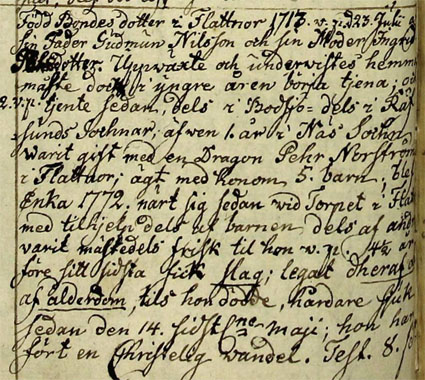 Född Bondes dotter i Flattnor 1713. v. p. d. 23. Julii a
sin Fader Gudmun Nilsson och sin Moder Ingrid
dotter. Upwäxte och underwistes hemma
måste dock i yngre åren börja tjena; och
tjente sedan, dels i Bodsjö- dels i Räf-
sunds Sochnar, äfwen 1. år i Näs Sochn.
Warit gift med en Dragon Pehr Norström
i Flattnor; ägt med honom 5. barn, blef
Enka 1772. närt sig sedan wid Torpet i Flat
med tilhjelp dels af barnen, dels af andr
varit måstedels frisk til hon v. p. 4½ år
före sitt sidsta fick slag; legat dheraf o
af ålderdom, tils hon dödde, hårdare sjuk
sedan den 14. sidstl.ne Maji; hon har
fört en Christelig wandel. Test. 8.